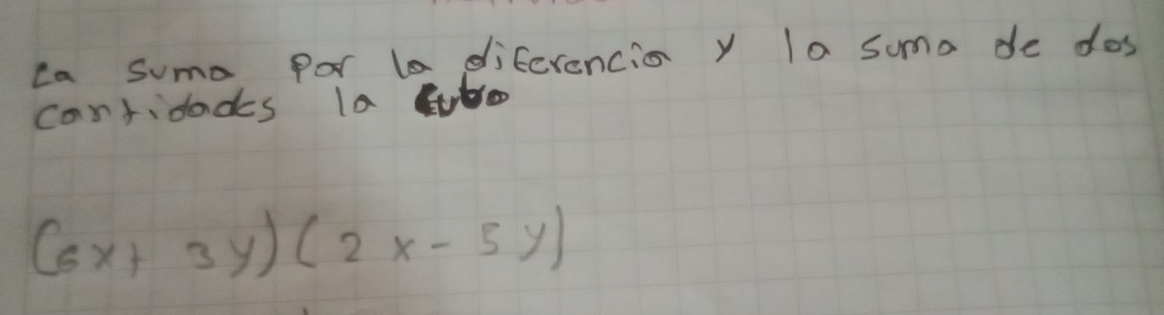 La suma por la diferencia y la suma de dos
cantidades la cubo
(6x+ 3y)(2x-5y)